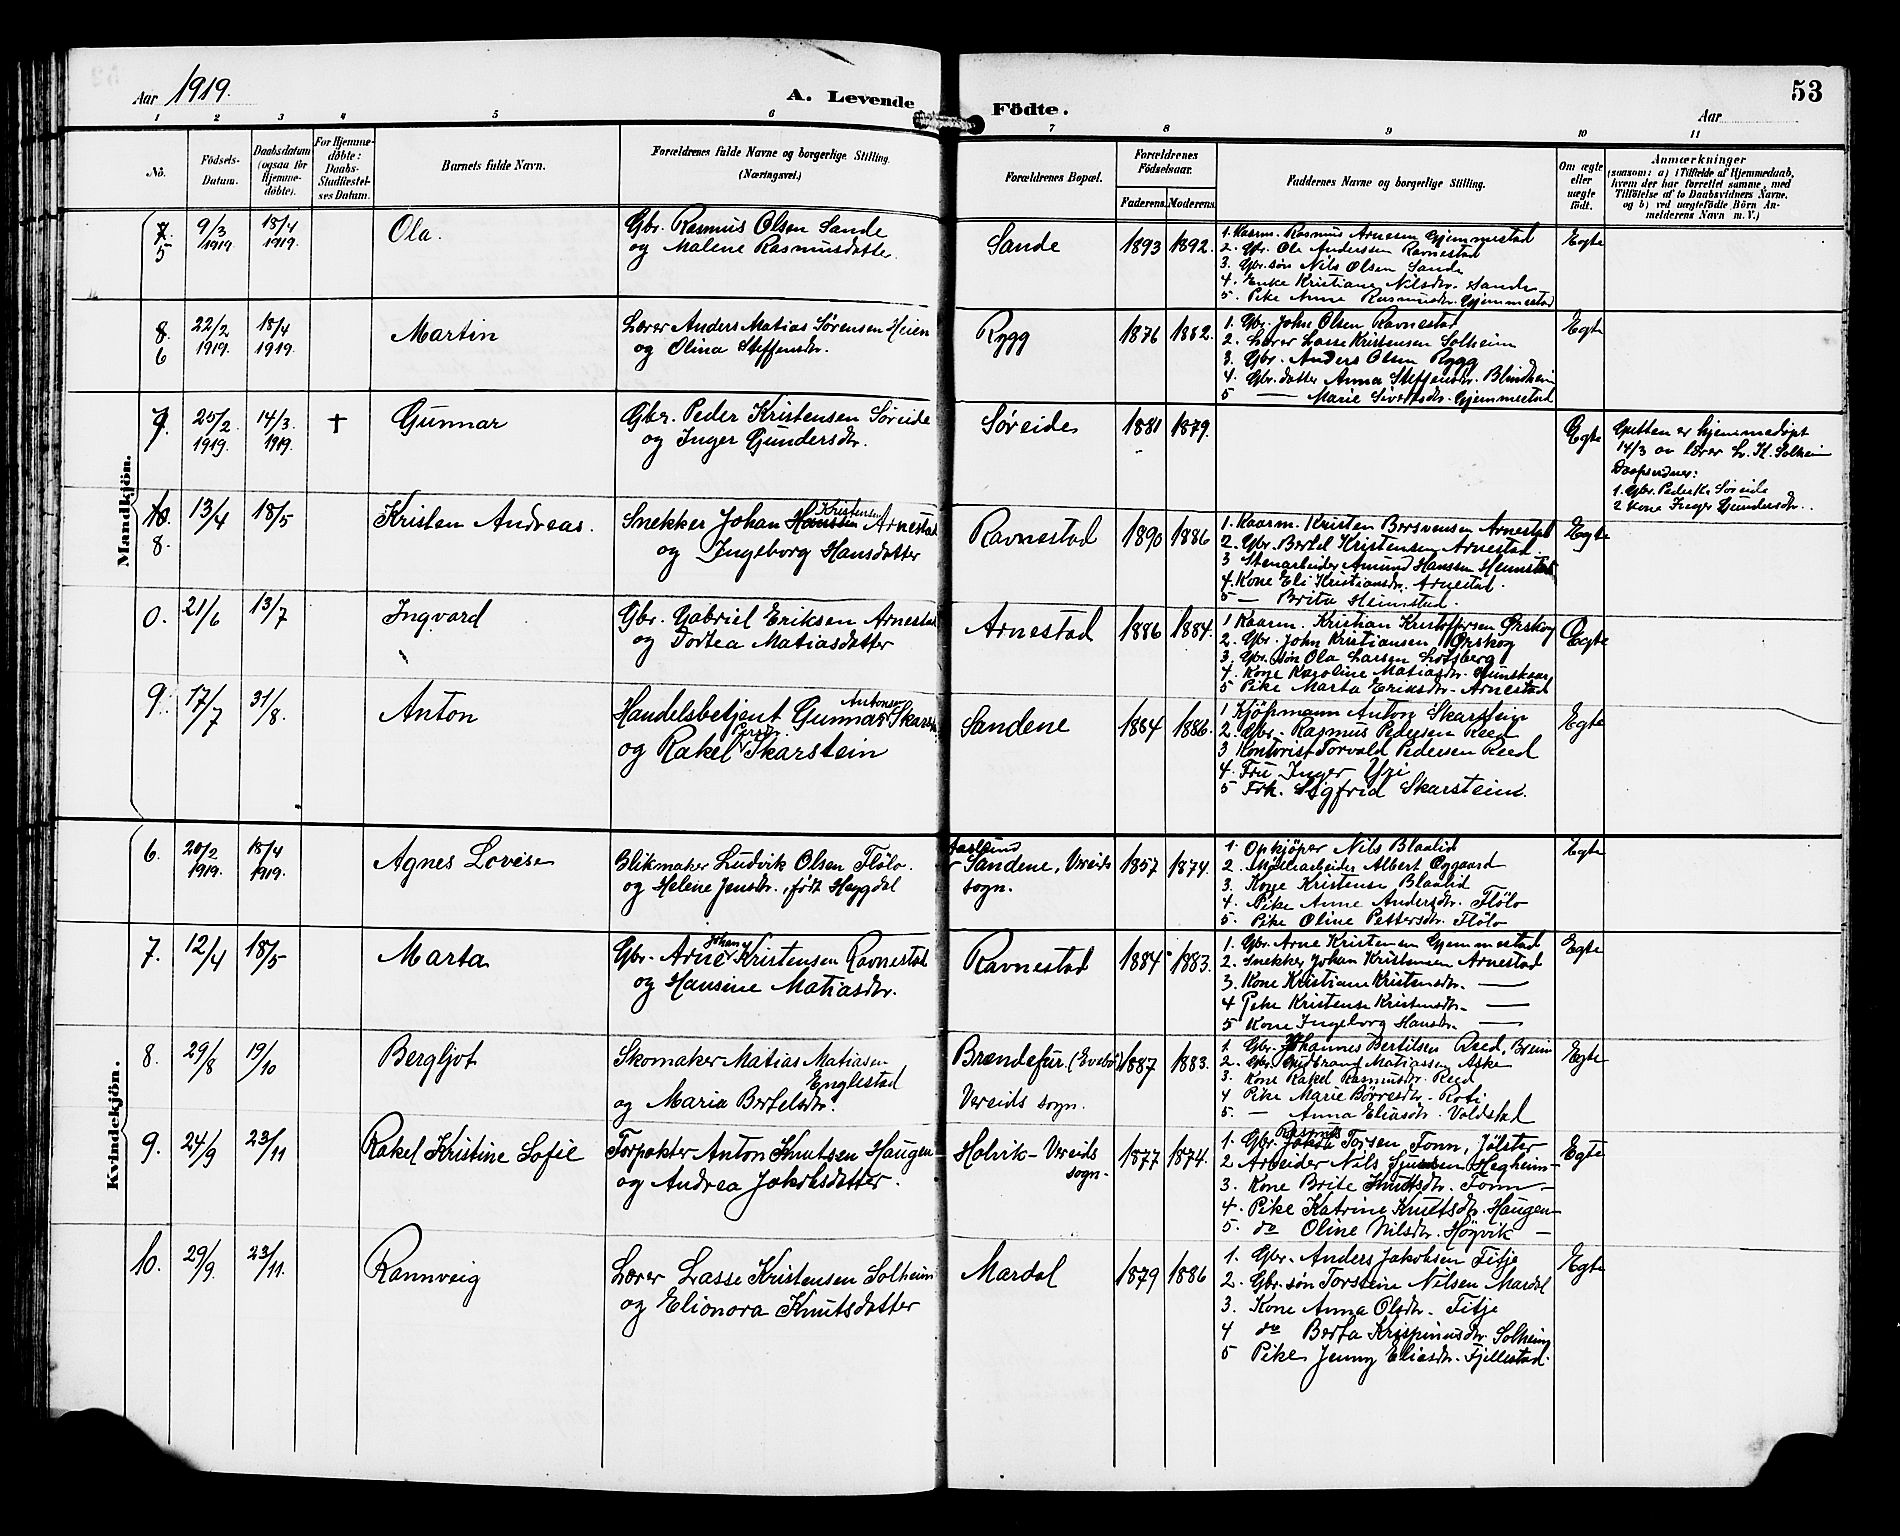 Aar 1919.
A. Levende Födte.
53
Aar
1 2 3 4 5 6 7 8 9 10 11
No.
Födsels-Datum.
Daabsdatum (ogsaa för Hjemme-döbte).
For Hjemme-döbte: Daabs-Stadfæstel-ses Datum.
Barnets fulde Navn.
Forældrenes fulde Navne og borgerlige Stilling.
(Næringsvei.)
Forældrenes Bopæl.
Forældrenes Födselsaar.
Faderens. Moderens.
Faddernes Navne og borgerlige Stilling.
Om ægte eller uægte födt.
Anmærkninger
(saasom: a) i Tilfælde af Hjemmedaab,
hvem der har forrettet samme, med
Tilföielse af to Daabsvidners Navne.
og b) ved uægtefödte Börn An-
melderens Navn m. V.)
Mandkjön.
7. 5 9/3 1919. 18/4 1919. Ola.
Gbr. Rasmus Olsen Sande
og Malene Rasmusdatter.
Sande 1893 1892.
1. Kaarm. Rasmus Arnesen Gjemmestad
2. Gbr. Ole Andersen Ravnestad
3. Gbr. søn Nils Olsen Sande
4. Enke Kristiane Nilsdtr. Sande
5. Pike Anne Rasmusdtr. Gjemmestad
Egte
8. 6 22/2 1919. 18/4 1919. Martin
Lærer Anders Matias Sørensen Heien
og Olina Steffensdtr.
Rygg 1876 1882.
1. Gbr. John Olsen Ravnestad
2. Lærer Lasse Kristensen Solheim
3. Gbr. Anders Olsen Rygg
4. Gbr. datter Anna Steffensdtr. Blindheim
5 — Marie Sivertsdtr. Gjemmestad
Egte
7. 25/2 1919. 14/3 1919. † Gunnar
Gbr. Peder Kristensen Søreide
og Inger Gundersdtr.
Søreide 1881 1879.
Egte
Gutten er hjemmedøpt
14/3 av lærer L. K. Solheim
Daapsvidner:
1. Gbr. Peder K. Søreide
2 Kone Inger Gundersdtr.
10. 8. 13/4 18/5 Kristen Andreas.
Snekker Johan Hansen Kristensen Arnestad
og Ingeborg Hansdatter
Ravnestad 1890 1886
1. Kaarm. Kristen Bersvensen Arnestad
2. Gbr. Bertel Kristensen Arnestad
3 Stenarbeider Amund Hanssen Heimstad
4. Kone Eli Kristiansdtr. Arnestad.
5 — Brita Heimstad.
Egte
0. 21/6 13/7 Ingvard
Gbr. Gabriel Eriksen Arnestad
og Dortea Matiasdatter
Arnestad 1886 1884.
1 Kaarm. Kristian Kristoffersen Ørskog
2. Gbr. John Kristiansen Ørskog
3. Gbr. søn Ola Larsen Lotsberg
4. Kone Karoline Matiasdtr. Hunskaar
5 Pike Marta Eriksdtr. Arnestad
Egte
9. 17/7 31/8. Anton
Handelsbetjent Gunnar Antonsen Skarstein
og Rakel Persdtr. Skarstein
Sandene 1884 1886.
1 Kjøpmann Anton Skarstein
2. Gbr. Rasmus Pedersen Reed
3 Kontorist Torvald Pedersen Reed
4. Fru Inger Yri
5 Frk. Sigfrid Skarstein.
Egte
Kvindekjön.
6. 20/2 1919. 18/4 1919. Agnes Lovise
Blikmaker Ludvik Olsen Flölo.
og Helene Jensdtr., født Haggdal
Aalesund Sandene, Vereids sogn. 1857 1874.
1. Opkjøper Nils Blaalid
2. Møllearbeider Albert Oygaard
3. Kone Kristense Blaalid
4. Pike Anne Andersdtr. Flölo
5. Pike Oline Pettersdtr. Flölo
Egte
7. 12/4 18/5 Marta
Gbr. Arne Johan Kristensen Ravnestad
og Hansine Matiasdtr.
Ravnestad 1884 1883.
1. Gbr. Arne Kristensen Gjemmestad
2. Snekker Johan Kristensen Arnestad
3. Kone Kristiane Kristensdtr. —
4 Pike Kristense Kristensdtr. —
5 Kone Ingeborg Hansdtr. —
Egte
8. 29/8 19/10 Bergljot
Skomaker Matias Matiasen
Englestad
og Maria Bertelsdtr.
Brændefur. (Evebø) Vereids sogn. 1887 1883.
1. Gbr. Johannes Bertilsen Reed, Breim
2. Gbr. Gudbrand Matiassen Aske
3. Kone Rakel Rasmusdtr. Reed
4 Pike Marie Børresdtr. Roti
5. — Anna Eliasdtr. Voldstad
Egte
9. 24/9 23/11 Rakel Kristine Sofie
Forpakter Anton Knutsen Haugen
og Andrea Jakobsdatter.
Holvik - Vereids sogn. 1877 1874.
1. Gbr. Rasmus Torsen Fonn, Jölster
2 Arbeider Nils Hegheim —
3. Kone Brite Knutsdtr. Fonn —
4. Pike Katrine Knutsdtr. Haugen —
5. do Oline Nilsdtr. Högvik —
Egte
10. 29/9. 23/11. Rannveig
Lærer Lasse Kristensen Solheim
og Elionora Knutsdatter
Mardal 1879 1886
1. Gbr. Anders Jakobsen Fitje
2. Gbr. søn Torstein Nilsen Mardal
3. Kone Anna Olsdtr. Fitje
4 do Berta Krispinusdtr. Solheim
5 Pike Jenny Eliasdtr. Fjellestad.
Egte